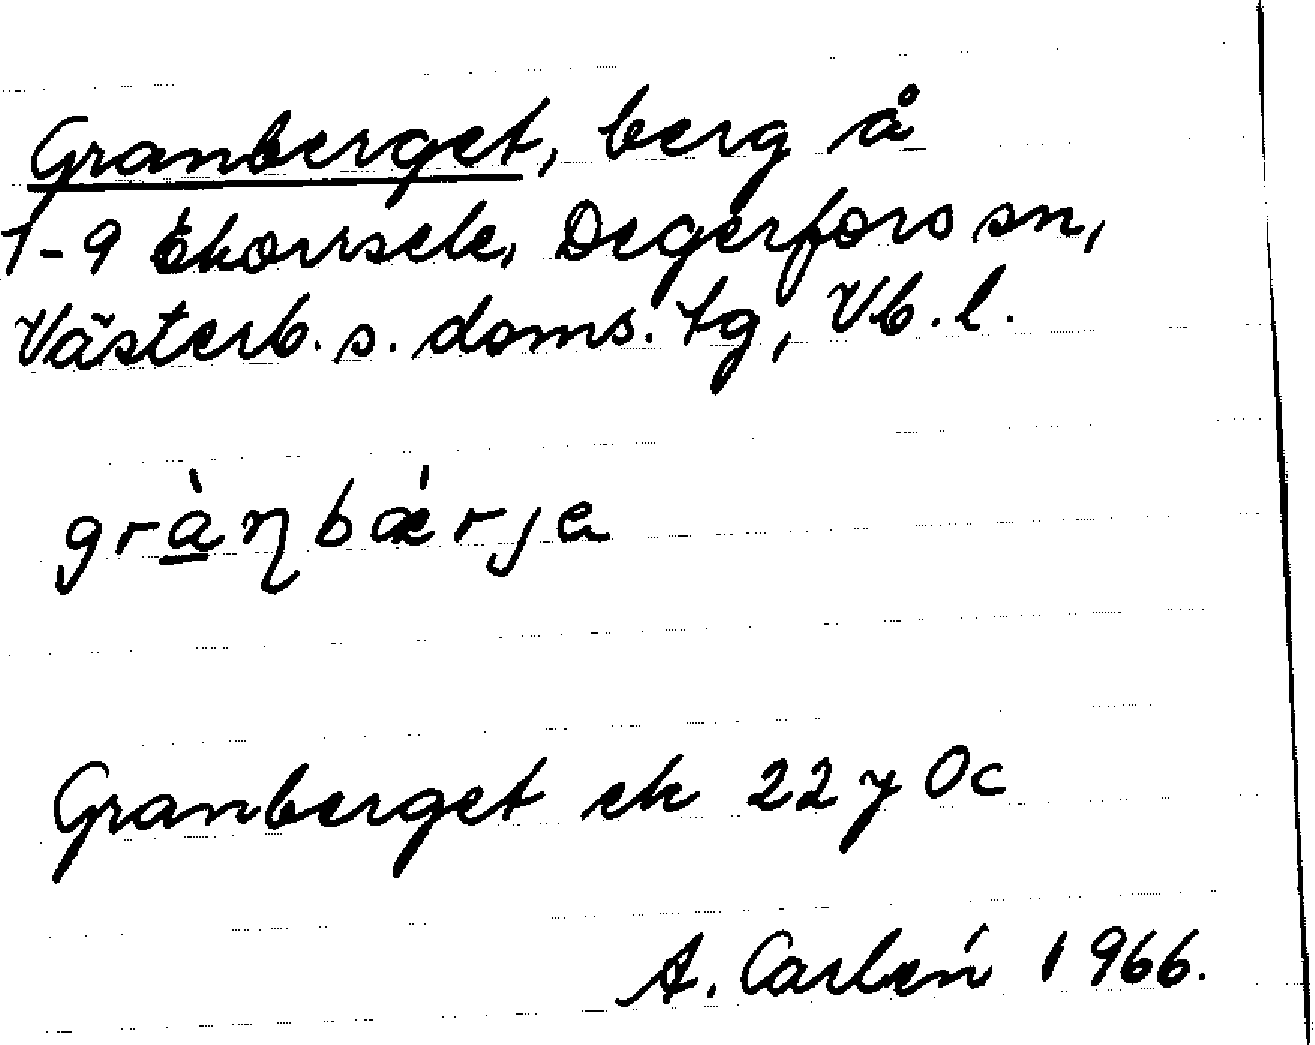 Granberget, berg å
1-9 Ekorrsele, Degerfors sn,
Västerb. s. doms. tg, Vb. l.
grànbǽrjɐ
Granberget ek 22 y 0c
A. Carlén 1966.